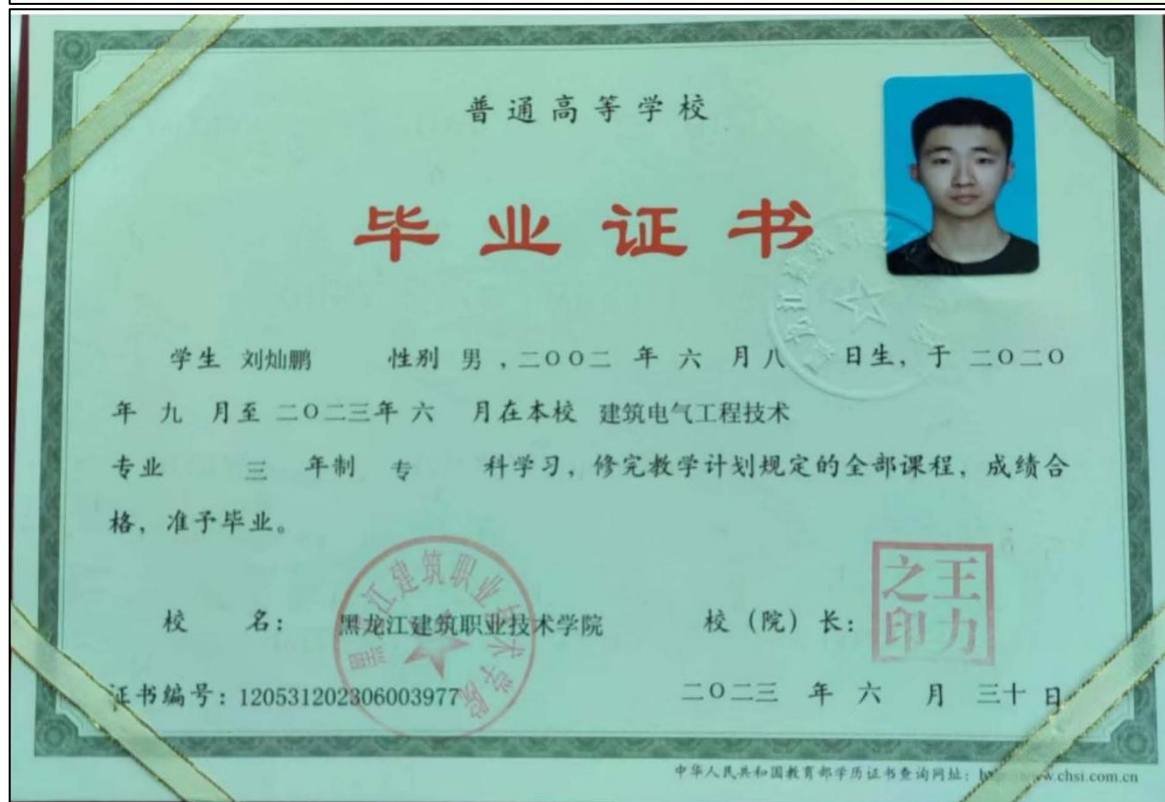 普通高等学校
毕业证书
学生 刘灿鹏 性别 男，二〇〇二 年 六 月 八 日生，于 二〇二〇
年 九 月至 二〇二三年 六 月在本校 建筑电气工程技术
专业 三 年制 专 科学习，修完教学计划规定的全部课程，成绩合
格，准予毕业。
校 名： 黑龙江建筑职业技术学院 校（院）长：
王力之印
黑龙江建筑职业技术学院
证书编号：120531202306003977 二〇二三 年 六 月 三十 日
中华人民共和国教育部学历证书查询网址： www.chsi.com.cn